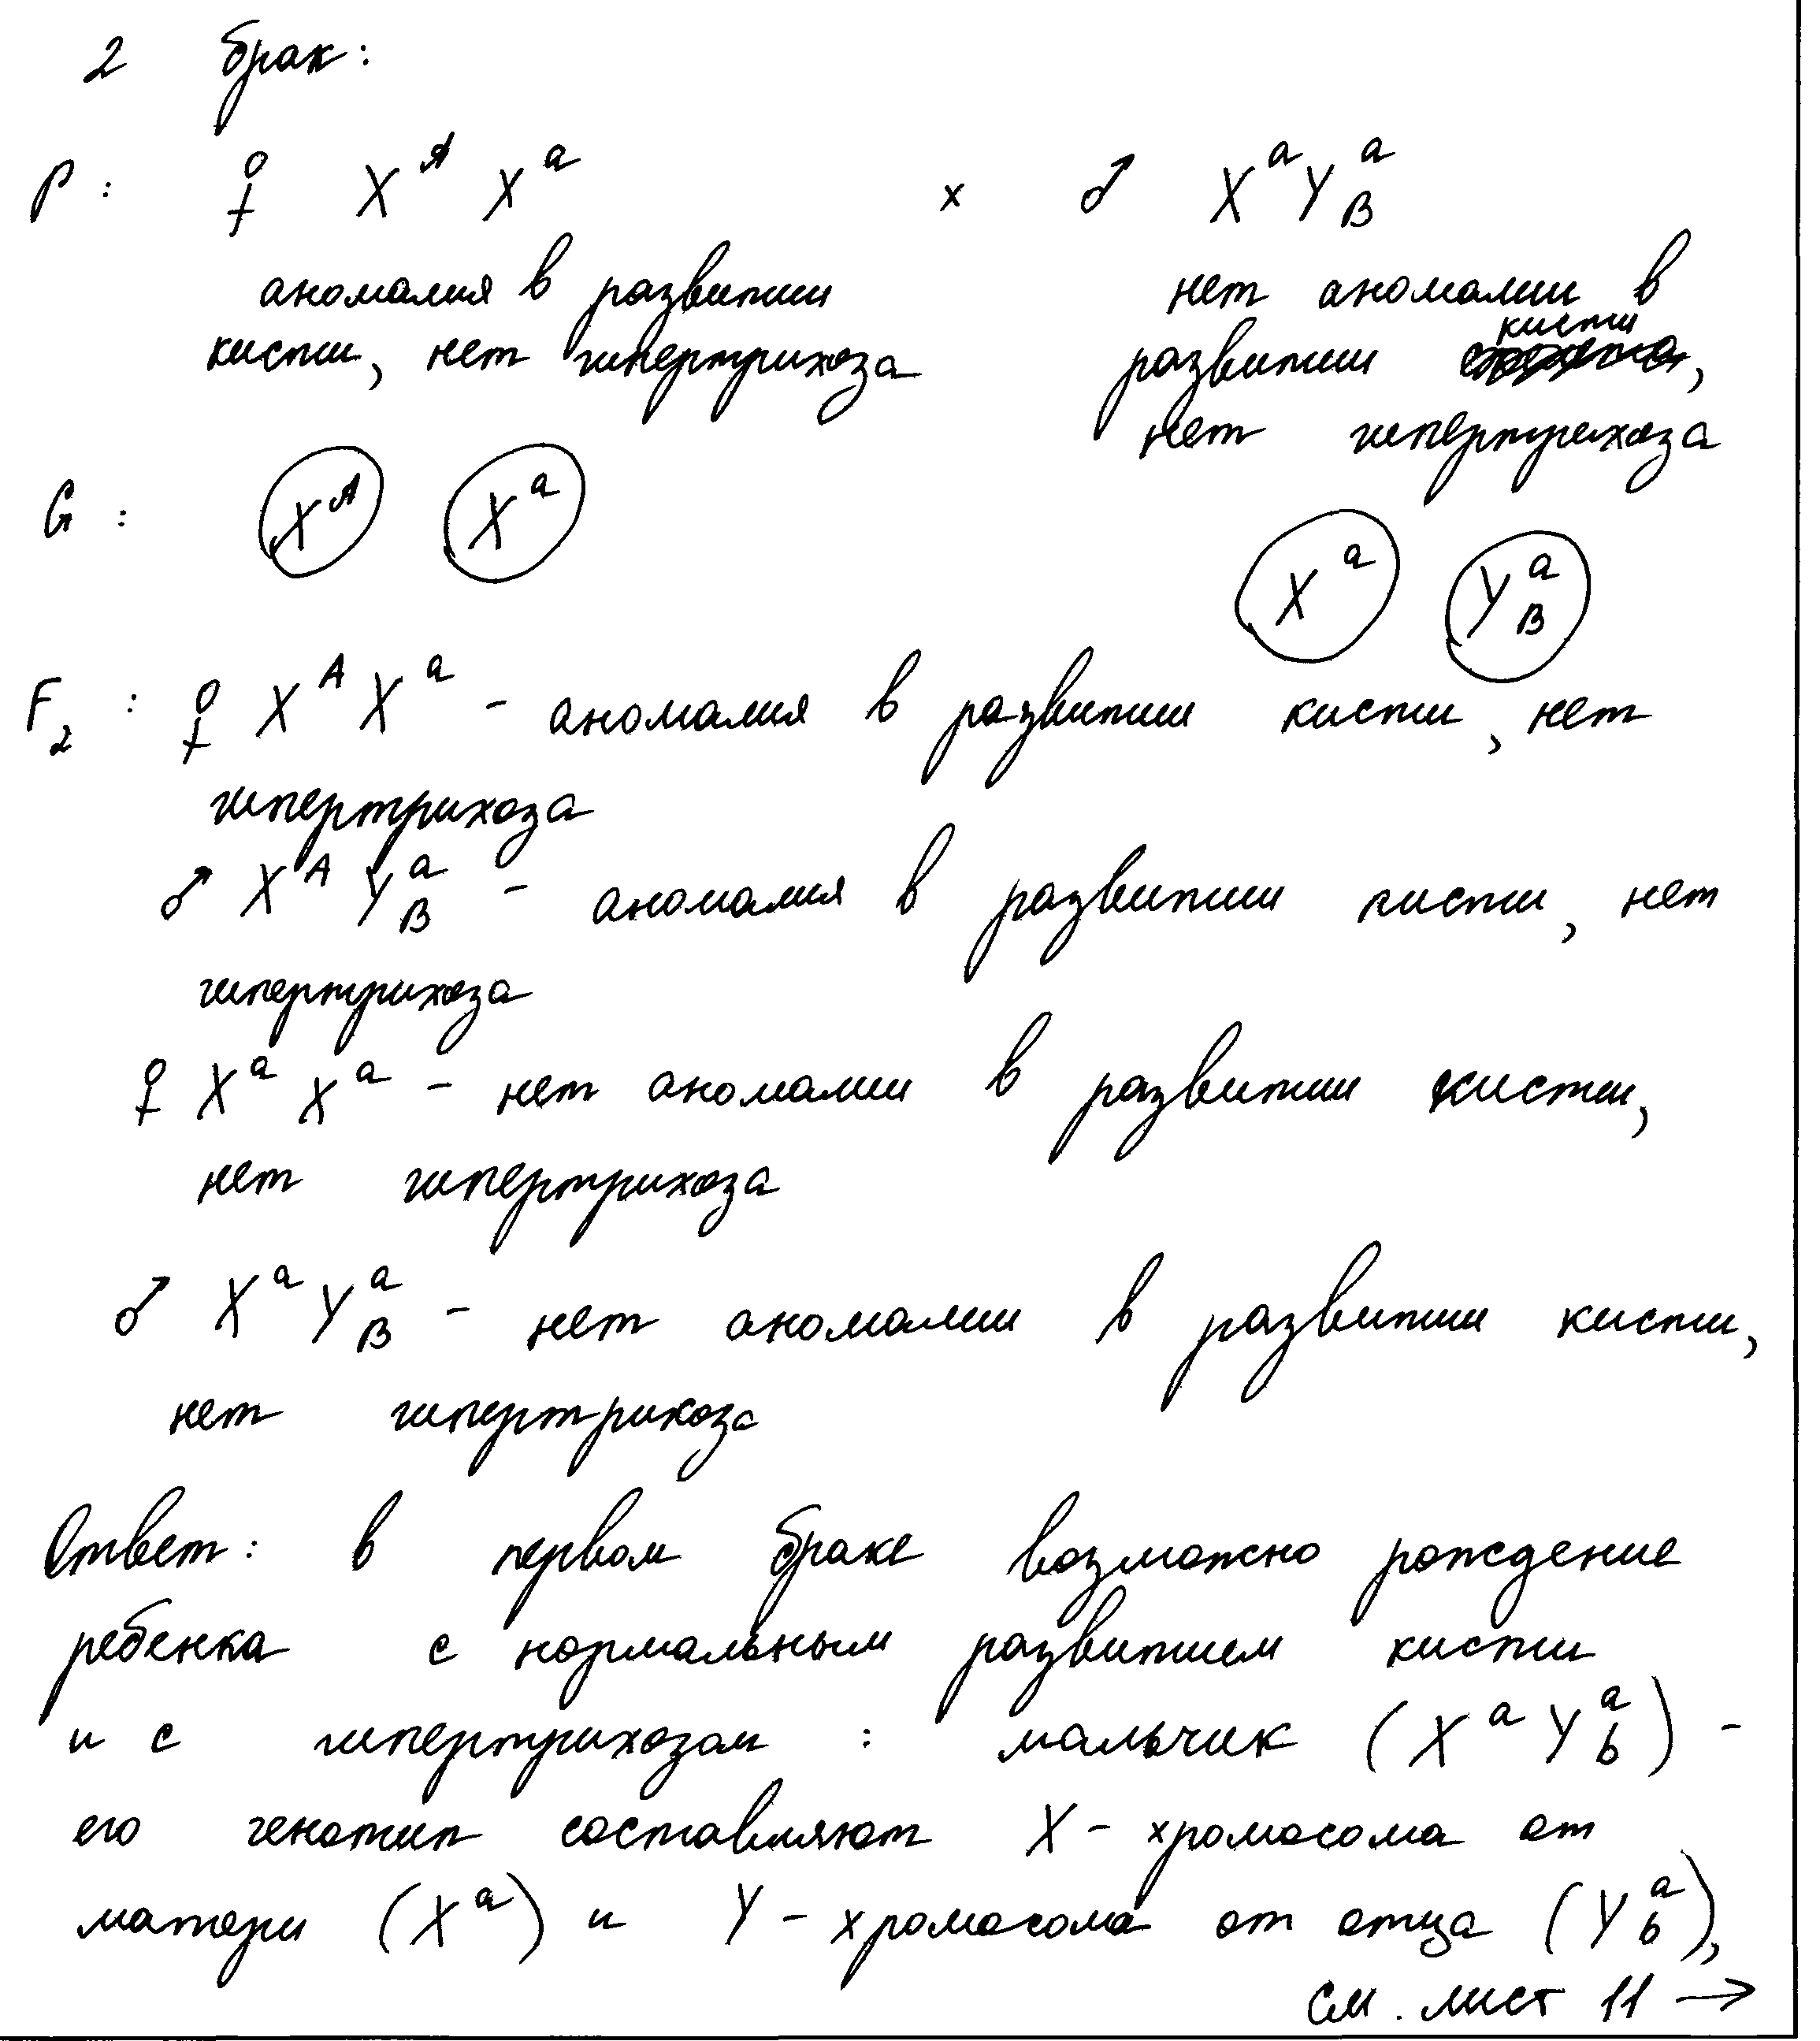 2 брак:
P: ♀ X^A X^a × ♂ X^a Y^a_B
аномалия в развитии нет аномалии в
кисти, нет гипертрихоза развитии кисти,
нет гипертрихоза
G: X^A X^a X^a Y^a_B
F_2: ♀ X^A X^a - аномалия в развитии кисти, нет
гипертрихоза
♂ X^A Y^a_B - аномалия в развитии кисти, нет
гипертрихоза
♀ X^a X^a - нет аномалии в развитии кисти,
нет гипертрихоза
♂ X^a Y^a_B - нет аномалии в развитии кисти,
нет гипертрихоза
Ответ: в первом браке возможно рождение
ребенка с нормальным развитием кисти
и с гипертрихозом : мальчик (X^a Y^a_b) -
его генотип составляют X - хромосома от
матери (X^a) и Y - хромосома от отца (Y^a_b),
см. лист 11 →